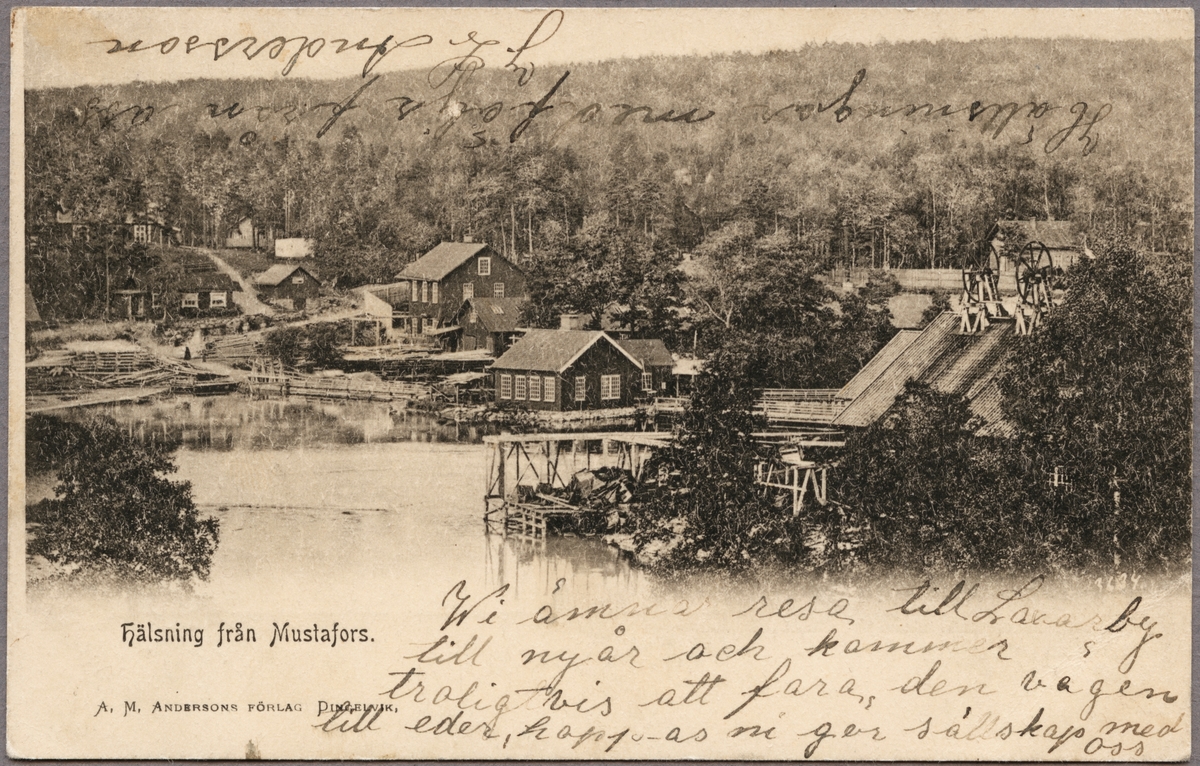 Wi ämna resa till Lavarby
till nyår och kommer
troligtvis att fara den vägen
till eder, hopp-as ni gör sällskap med
oss
Hälsningar med följs från oss
G. Andersson
Hälsning från Mustafors.
A. M. ANDERSONS FÖRLAG DINGELVIK,
1684